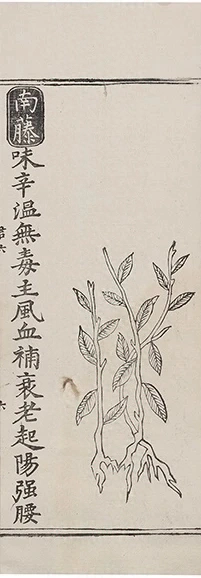 南藤味辛溫無毒主風血補衰老起陽强腰